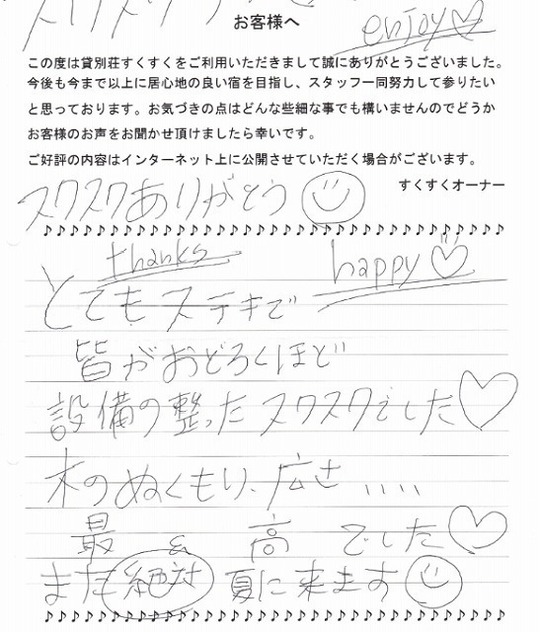 スクスク
お客様へ
enjoy
この度は貸別荘すくすくをご利用いただきまして誠にありがとうございました。
今後も今まで以上に居心地の良い宿を目指し、スタッフ一同努力して参りたい
と思っております。お気づきの点はどんな些細な事でも構いませんのでどうか
お客様のお声をお聞かせ頂けましたら幸いです。
ご好評の内容はインターネット上に公開させていただく場合がございます。
すくすくオーナー
スクスクありがとう
thanks
happy
とてもステキで
皆がおどろくほど
設備の整ったスクスクでした
木のぬくもり、広さ、、、、
最&高でした
また絶対夏に来ます